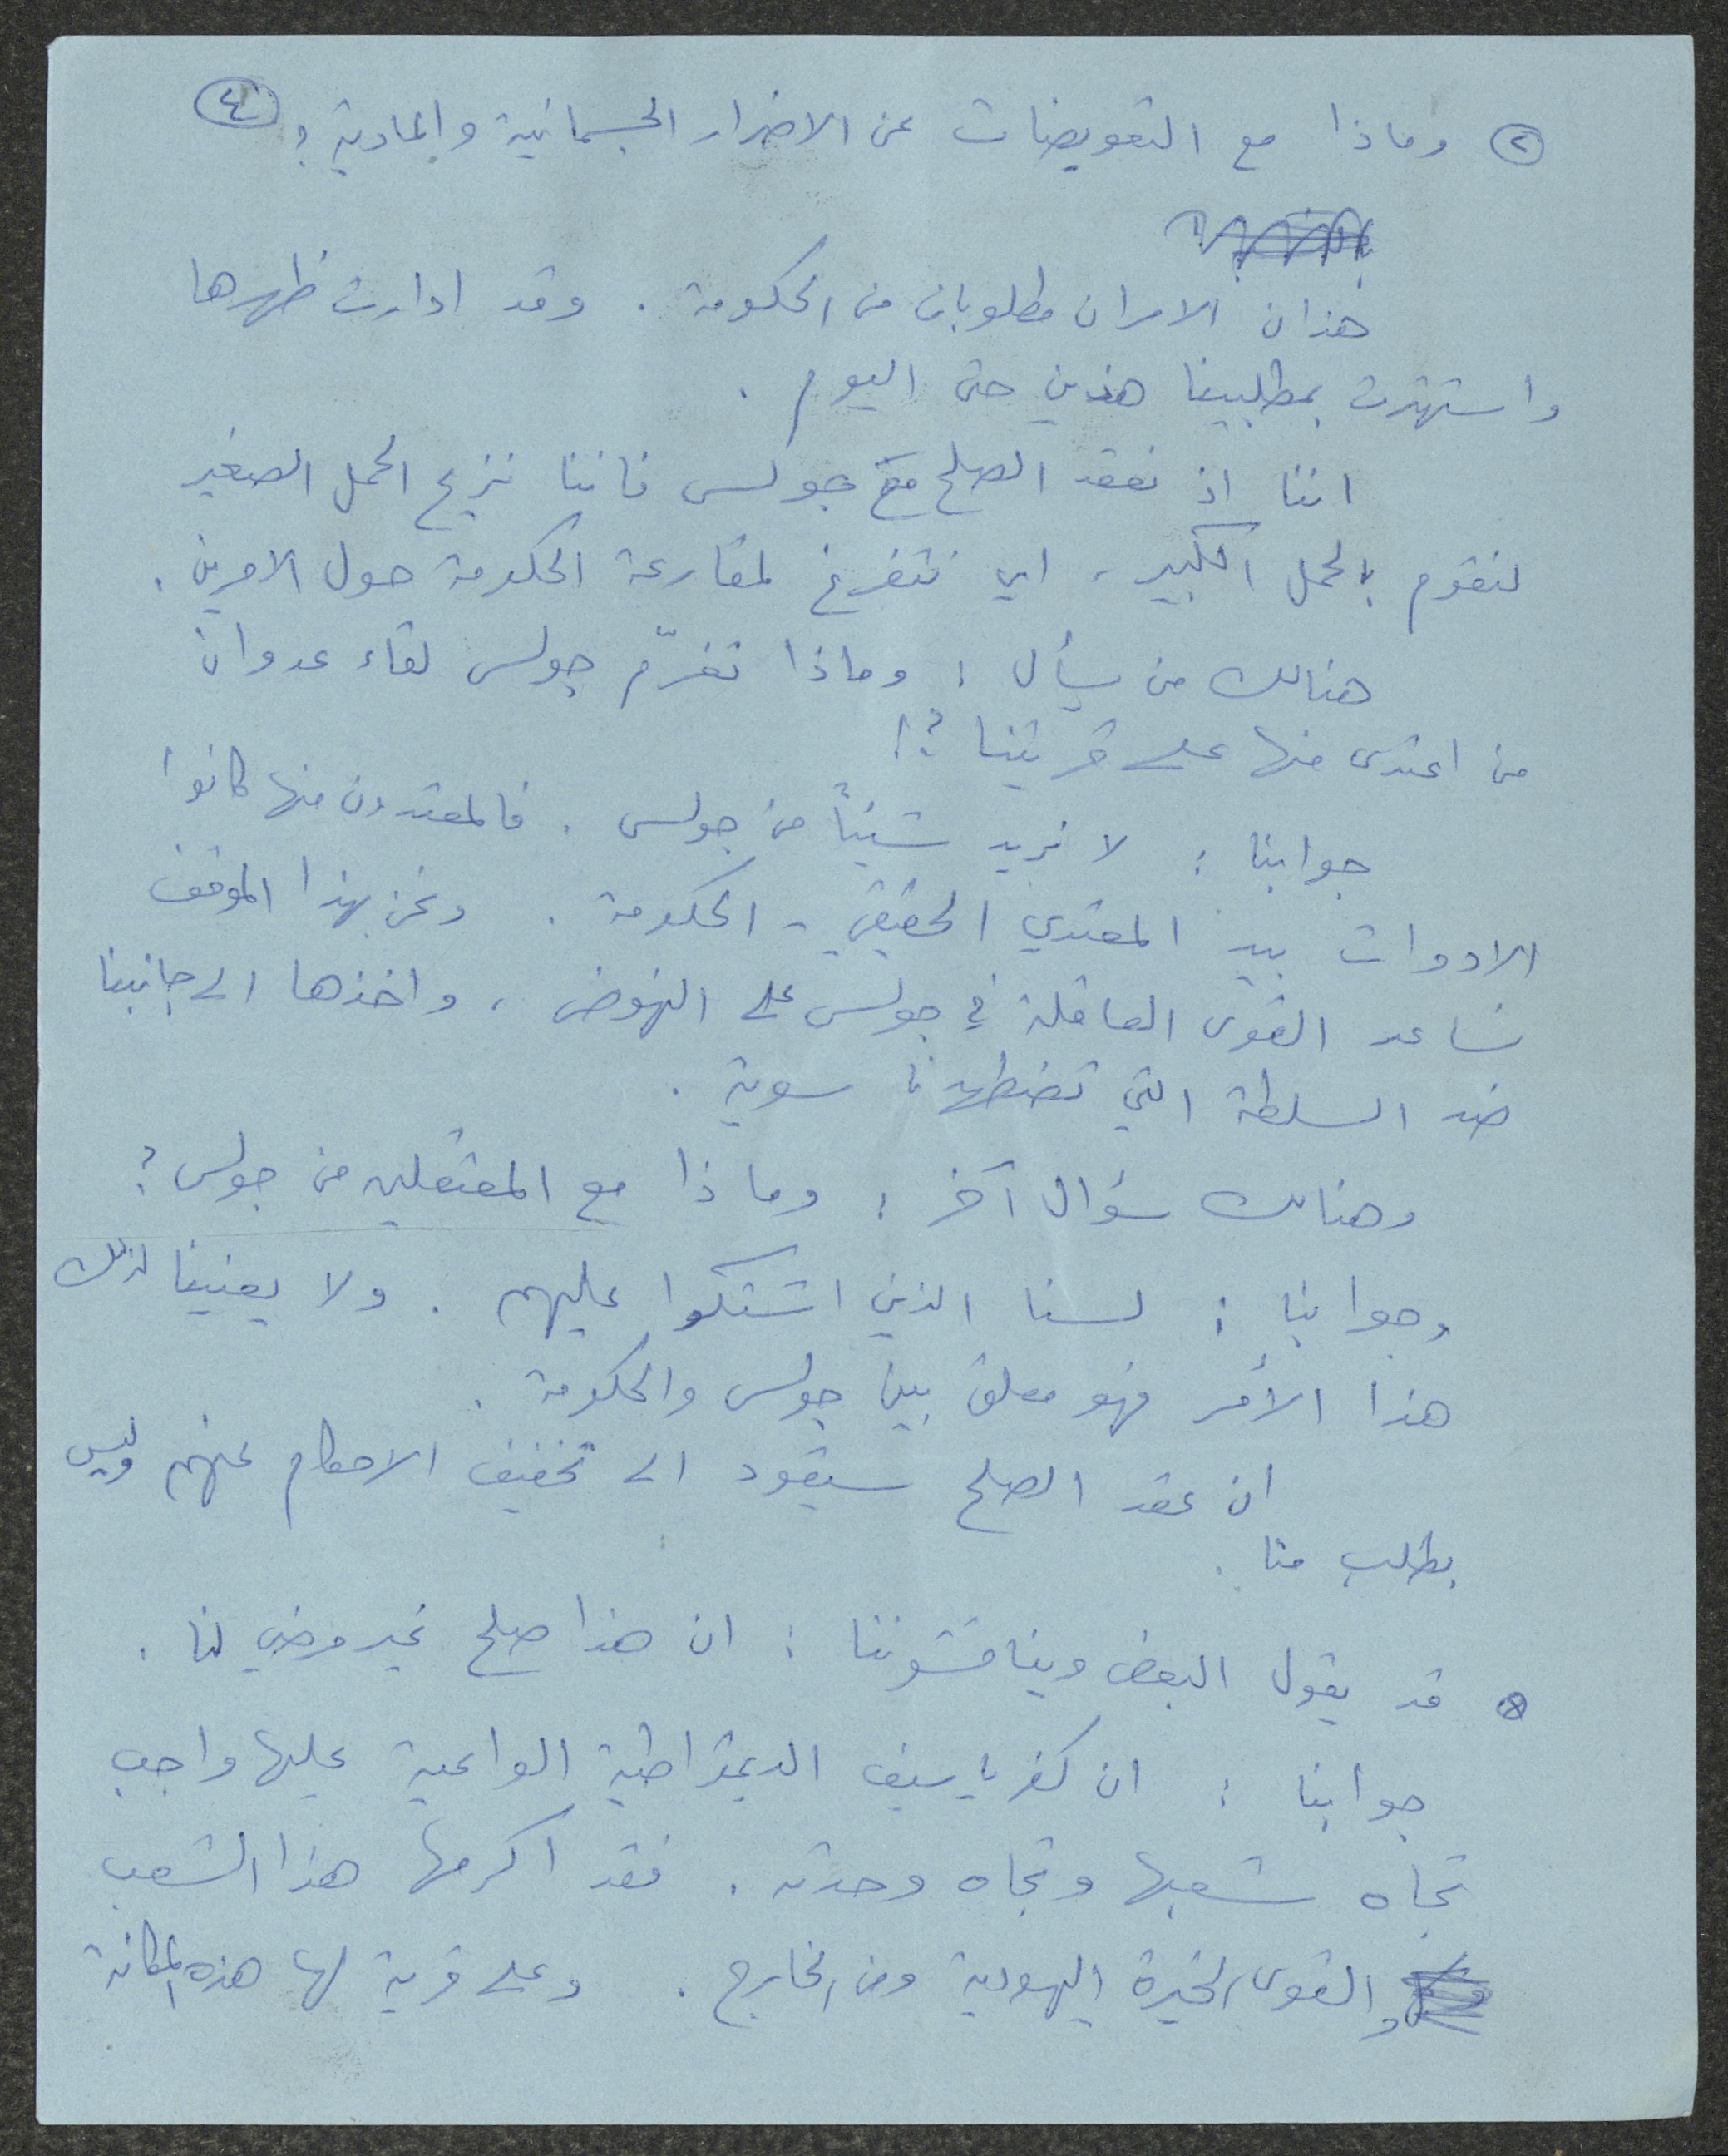 ② وماذا مع التعويضات عن الاضرار الجسمانية والمادية؟ ④
هذان الامران مطلوبان من الحكومة . وقد ادارت ظهرها
واستهترت بمطلبينا هذين حتى اليوم .
اننا اذ نعقد الصلح مع جولس فاننا نزيح الحمل الصغير
لنقوم بالحمل الكبير، اي نتفرغ لمقارعة الحكومة حول الامرين .
هنالك من يسأل : وماذا تغرّم جولس لقاء عدوان
من اعتدى منها على قريتنا ؟!
جوابنا : لا نريد شيئاً من جولس . فالمعتدون منها كانوا
الادوات بيد المعتدي الحقيقي - الحكومة . ونحن بهذا الموقف
نساعد القوى العاقلة في جولس على النهوض ، واخذها الى جانبنا
ضد السلطة التي تضطهدنا سوية .
وهنالك سؤال آخر : وماذا مع المعتقلين من جولس ؟
وجوابنا : لسنا الذين اشتكوا عليهم . ولا يعنينا لذلك
هذا الأمر فهو معلق بين جولس والحكومة .
ان عقد الصلح سيقود الى تخفيف الاحكام عنهم وليس
بطلب منا .
قد يقول البعض ويناقشوننا : ان هذا صلح غير مرضي لنا .
جوابنا : ان كفر ياسيف الديمقراطية الواعية عليها واجب
تجاه شعبها وتجاه وحدته . فقد اكرمها هذا الشعب
والقوى الخيرة اليهودية ومن الخارج . وعلى قرية لها هذه المكانة